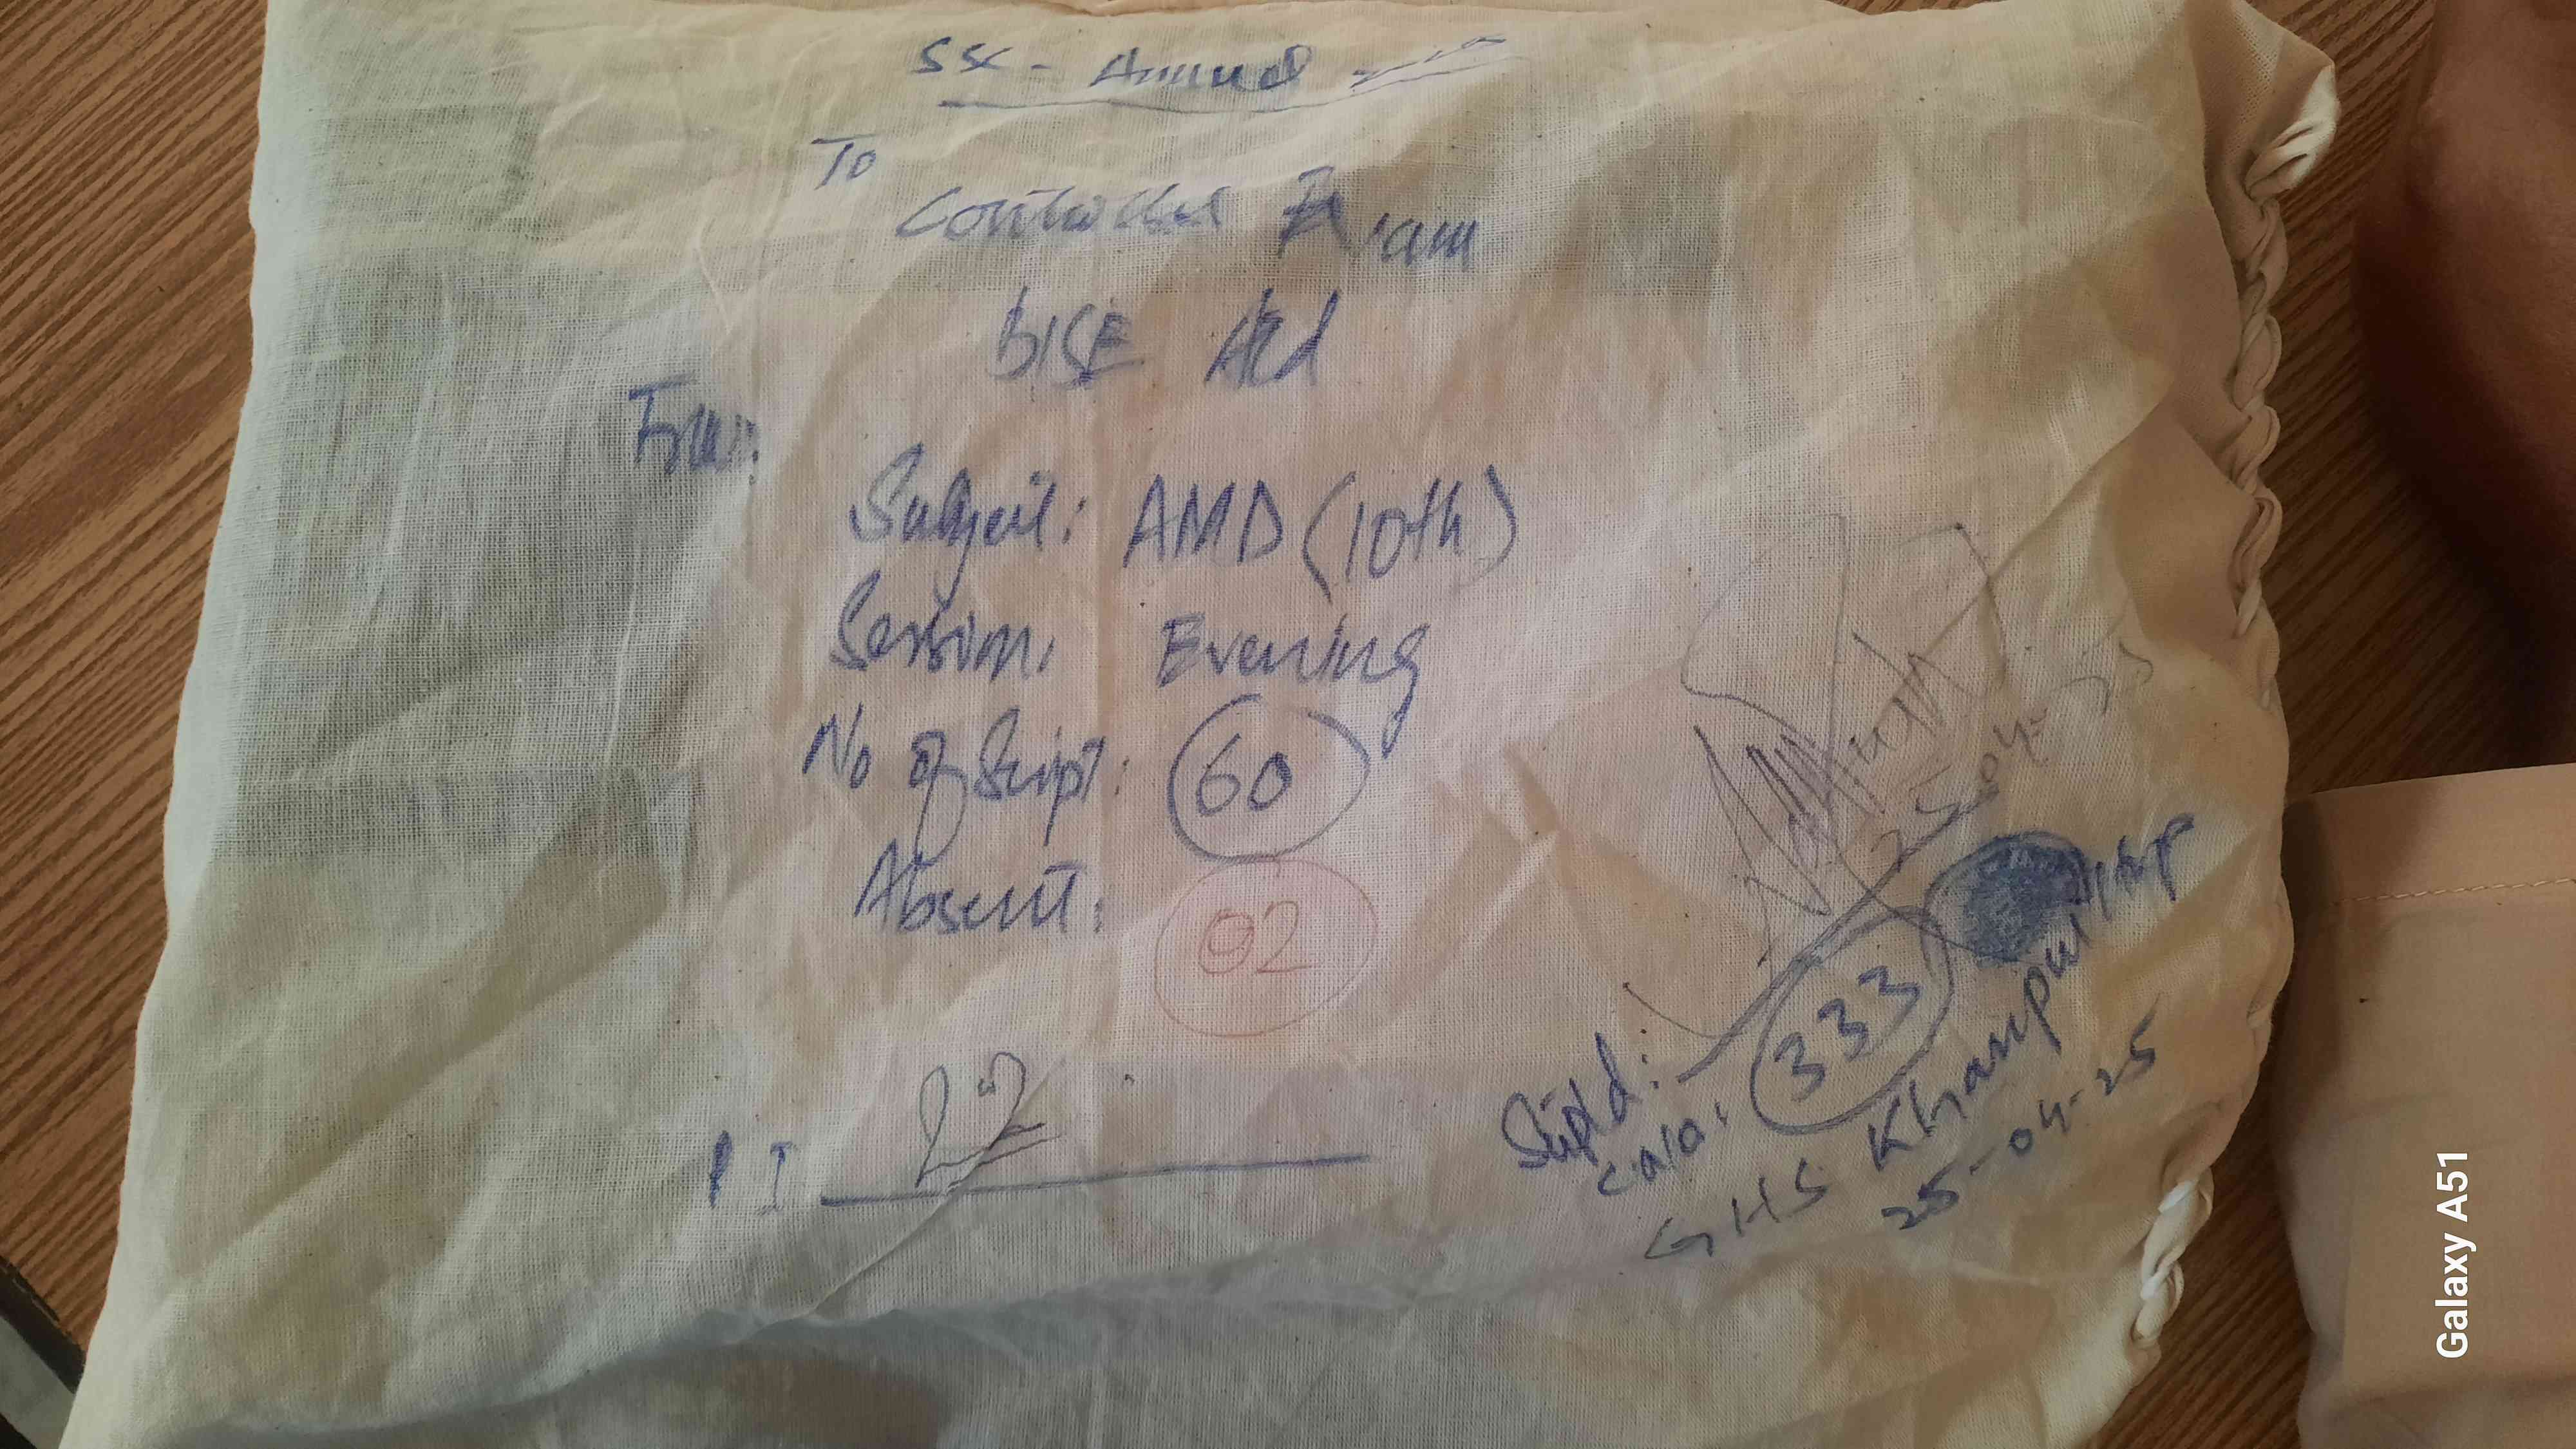 SSC - Annual
To
Controller Exam
BISE Atd
From:
Subject: AMD (10th)
Session: Evening
No of Script: 60
Absent: 02
25-04-25
Suptd:
333
GHS Khanpur
25-04-25
Galaxy A51